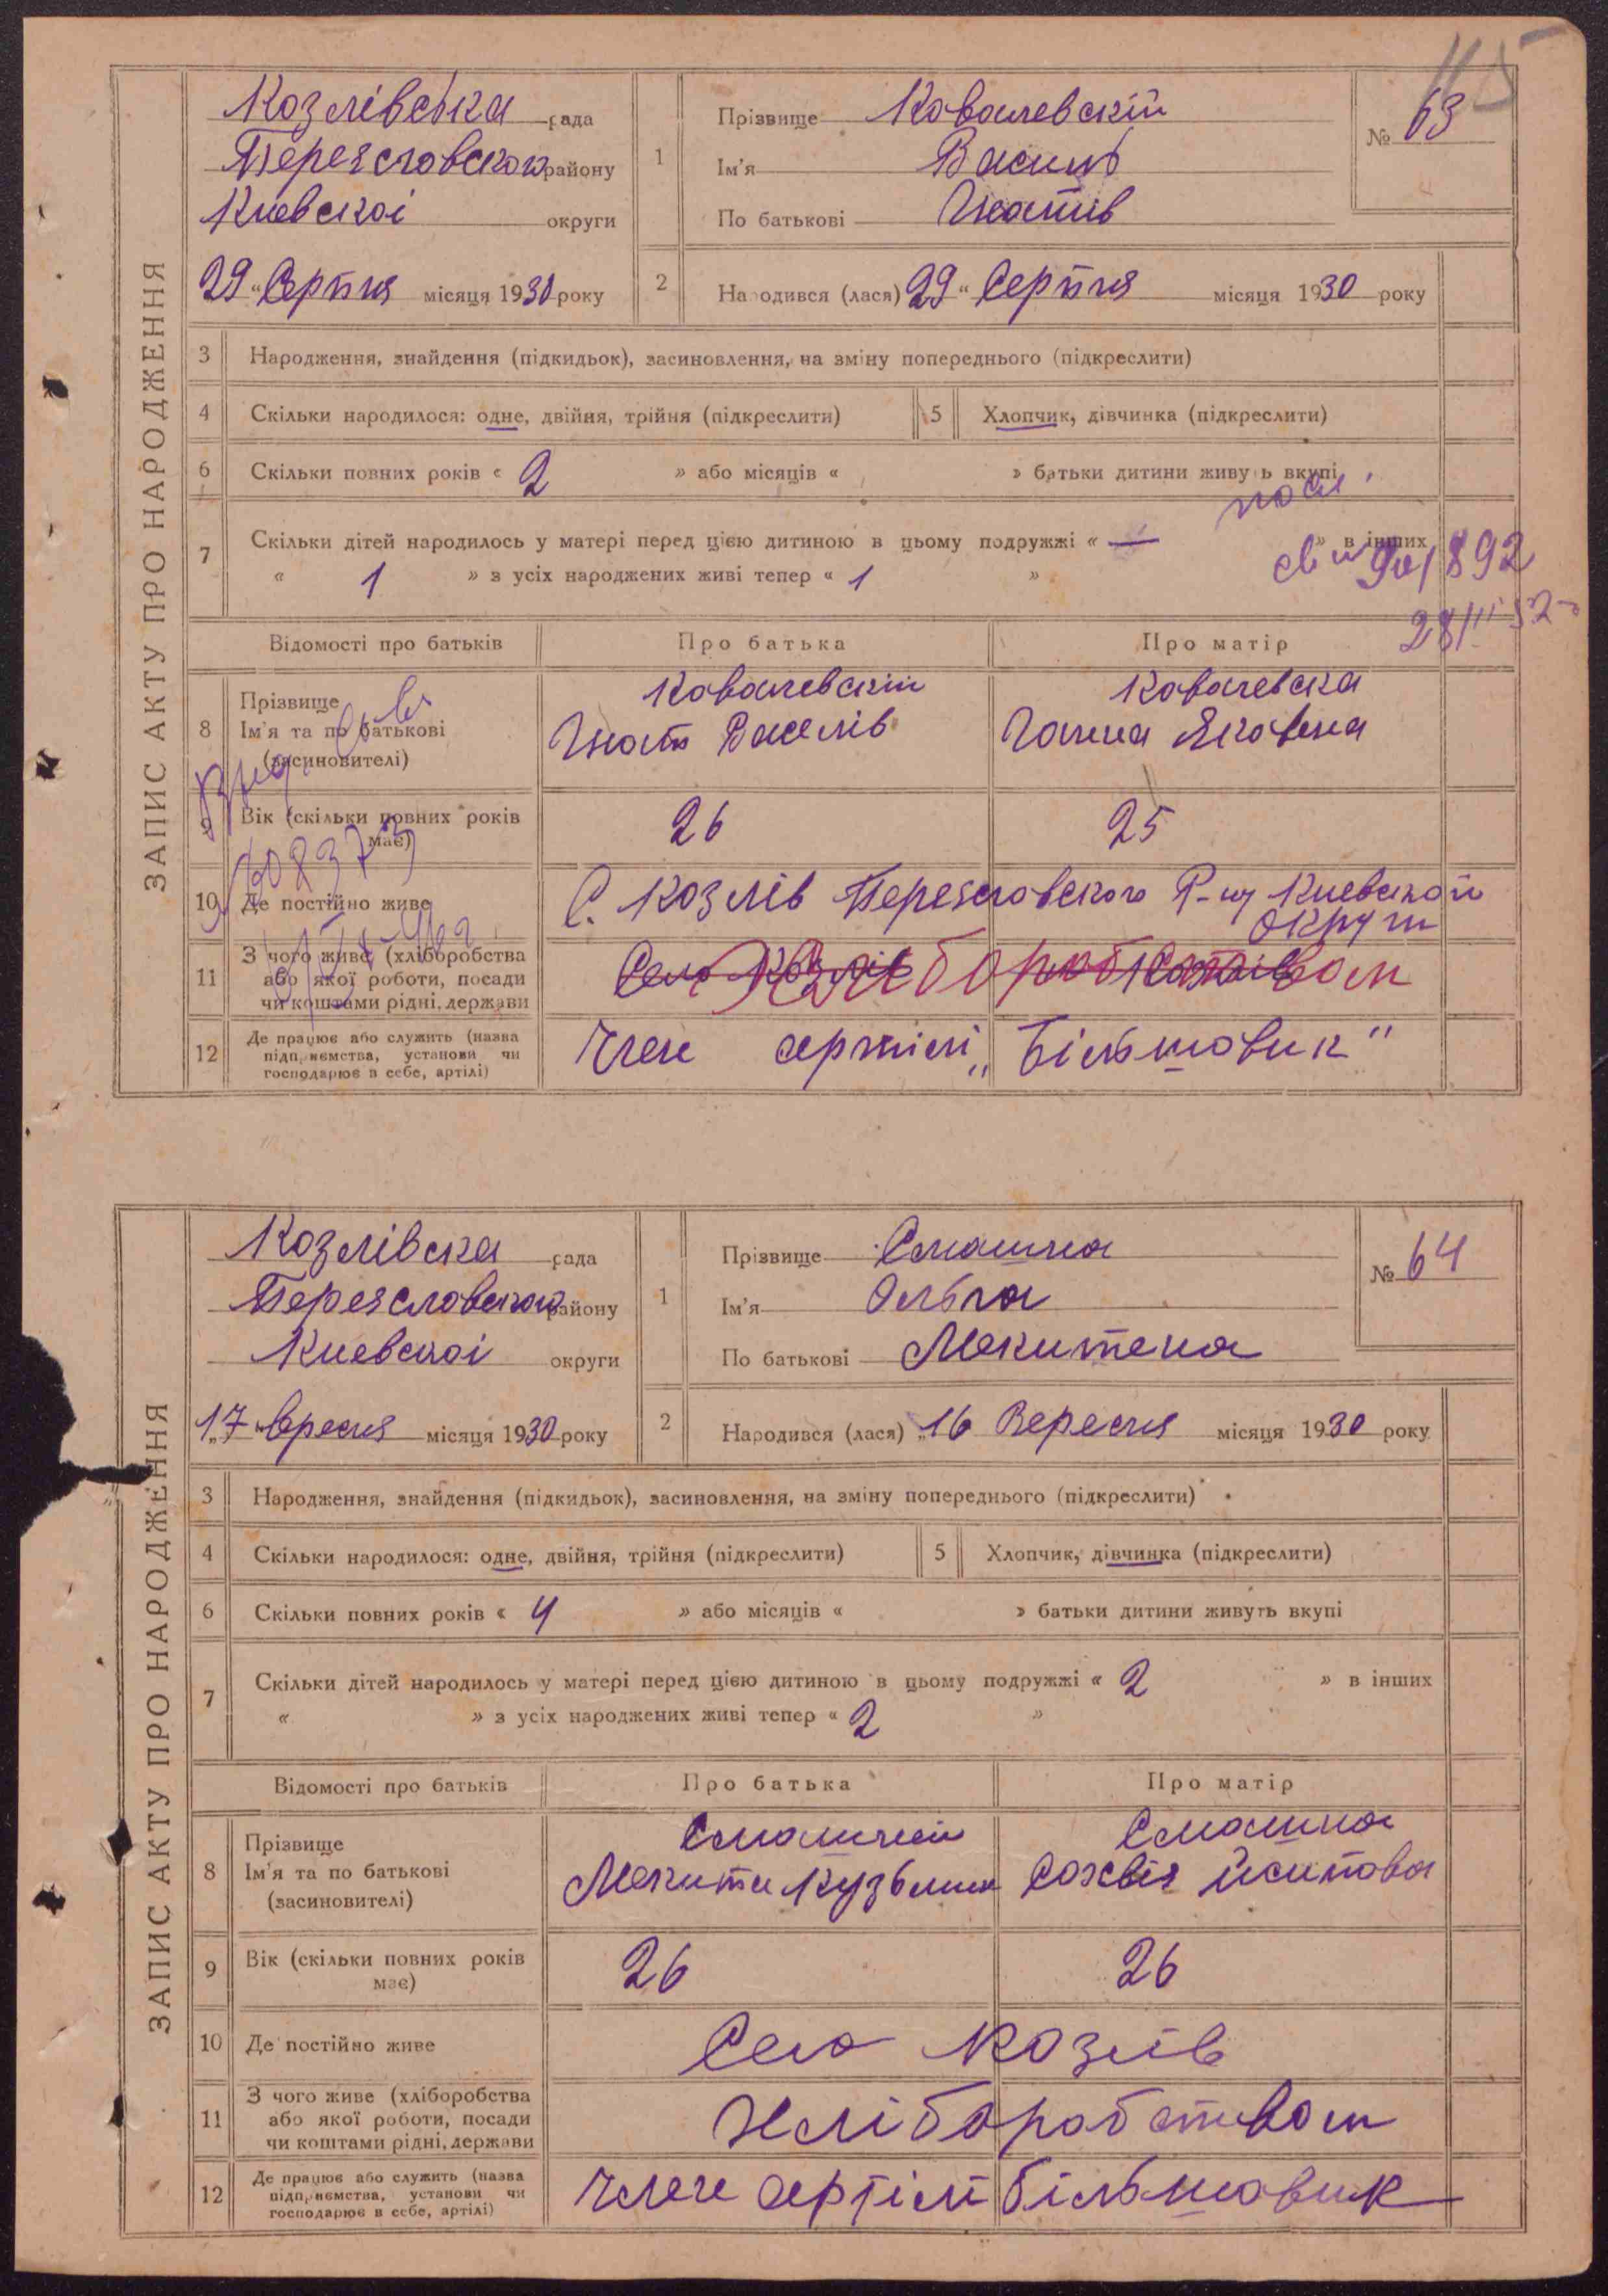 115
ЗАПИС АКТУ ПРО НАРОДЖЕННЯ
Козлівська рада
Переяславского району
Киевскоі округи
29 "Серпня місяця 1930 року
1 Прізвище Ковалевскій
Ім'я Василь
По батькові Гнатів
№ 63
2 Народився (лася) 29 " Серпня місяця 1930 року
3 Народження, знайдення (підкидьок), засиновлення, на зміну попереднього (підкреслити)
4 Скільки народилося: одне, двійня, трійня (підкреслити) 5 Хлопчик, дівчинка (підкреслити)
6 Скільки повних років « 2 » або місяців « » батьки дитини живуть вкупі
7 Скільки дітей народилось у матері перед цією дитиною в цьому подружжі « — » в інших
« 1 » з усіх народжених живі тепер « 1 »
28/III 52
Відомості про батьків Про батька Про матір
8 Прізвище
Ім'я та по батькові
(засиновителі)
Ковалевский
Гнат Василів
Ковалевска
Ганна Яковена
9 Вік (скільки повних років має) 26 25
10 Де постійно живе С. Козлів Переяславского Р-ну Киевской
округи
11 З чого живе (хліборобства
або якої роботи, посади
чи коштами рідні, держави
Хліборобством
12 Де працює або служить (назва
підприємства, установи чи
господарює в себе, артілі)
Член артілі „Більшовик"
ЗАПИС АКТУ ПРО НАРОДЖЕННЯ
Козлівска рада
Переяславского району
Киевскоі округи
17 "Вресня місяця 1930 року
1 Прізвище Смашна
Ім'я Ольга
По батькові Мекитена
№ 64
2 Народився (лася) „16 Вересня місяця 1930 року
3 Народження, знайдення (підкидьок), засиновлення, на зміну попереднього (підкреслити)
4 Скільки народилося: одне, двійня, трійня (підкреслити) 5 Хлопчик, дівчинка (підкреслити)
6 Скільки повних років « 4 » або місяців « » батьки дитини живуть вкупі
7 Скільки дітей народилось у матері перед цією дитиною в цьому подружжі « 2 » в інших
« » з усіх народжених живі тепер « 2 »
Відомості про батьків Про батька Про матір
8 Прізвище
Ім'я та по батькові
(засиновителі)
Смашний
Мекита Кузьмин
Смашна
Йосипова
9 Вік (скільки повних років має) 26 26
10 Де постійно живе Село Козлів
11 З чого живе (хліборобства
або якої роботи, посади
чи коштами рідні, держави
Хліборобством
12 Де працює або служить (назва
підприємства, установи чи
господарює в себе, артілі)
Член артіли Більшовик